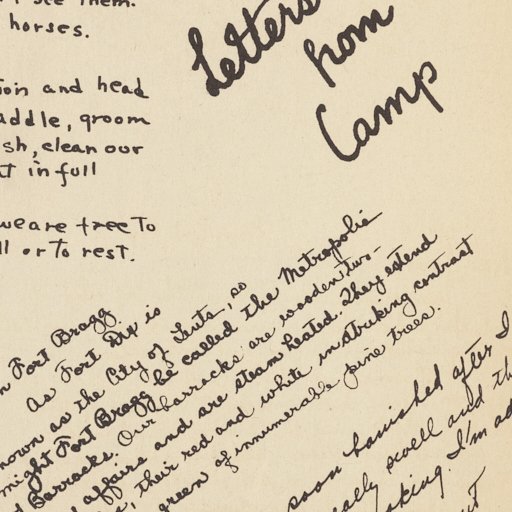 see them.
horses.
and head
groom
clean our
in full
we are free to
or to rest.
Letters
from
Camp
Fort Bragg
As Fort Dix is
as the City of Tents, so
might Fort Bragg be called the Metropolie
Barracks. Our barracks are wooden, two-
affairs and are steam heated. They extend
their red and white in striking contrast
green of innumerable pine trees.
soon banished after I
swell and
I'm